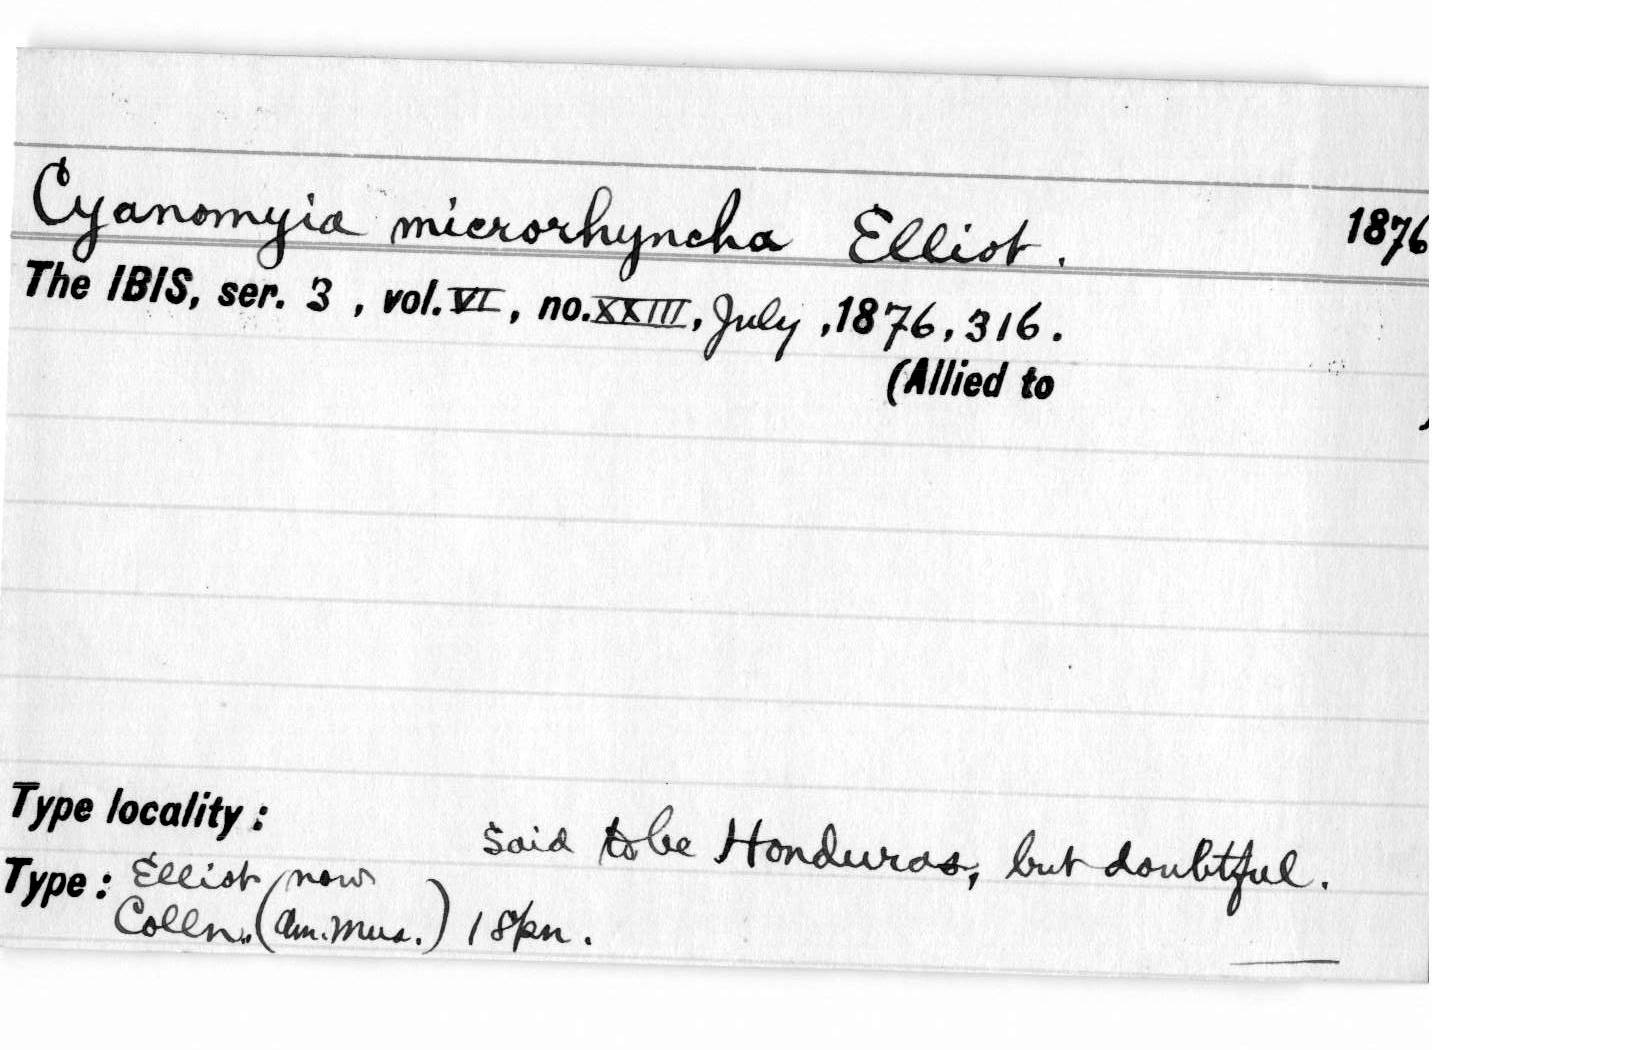 Cyanomyia microrhyncha Elliot. 1876
The IBIS, ser. 3, vol. VI, no. XXIII, July, 1876, 316.
(Allied to )
Type locality:
Said to be Honduras, but doubtful.
Type: Elliot (now
Colln. (Am. Mus.) 1 Spn.